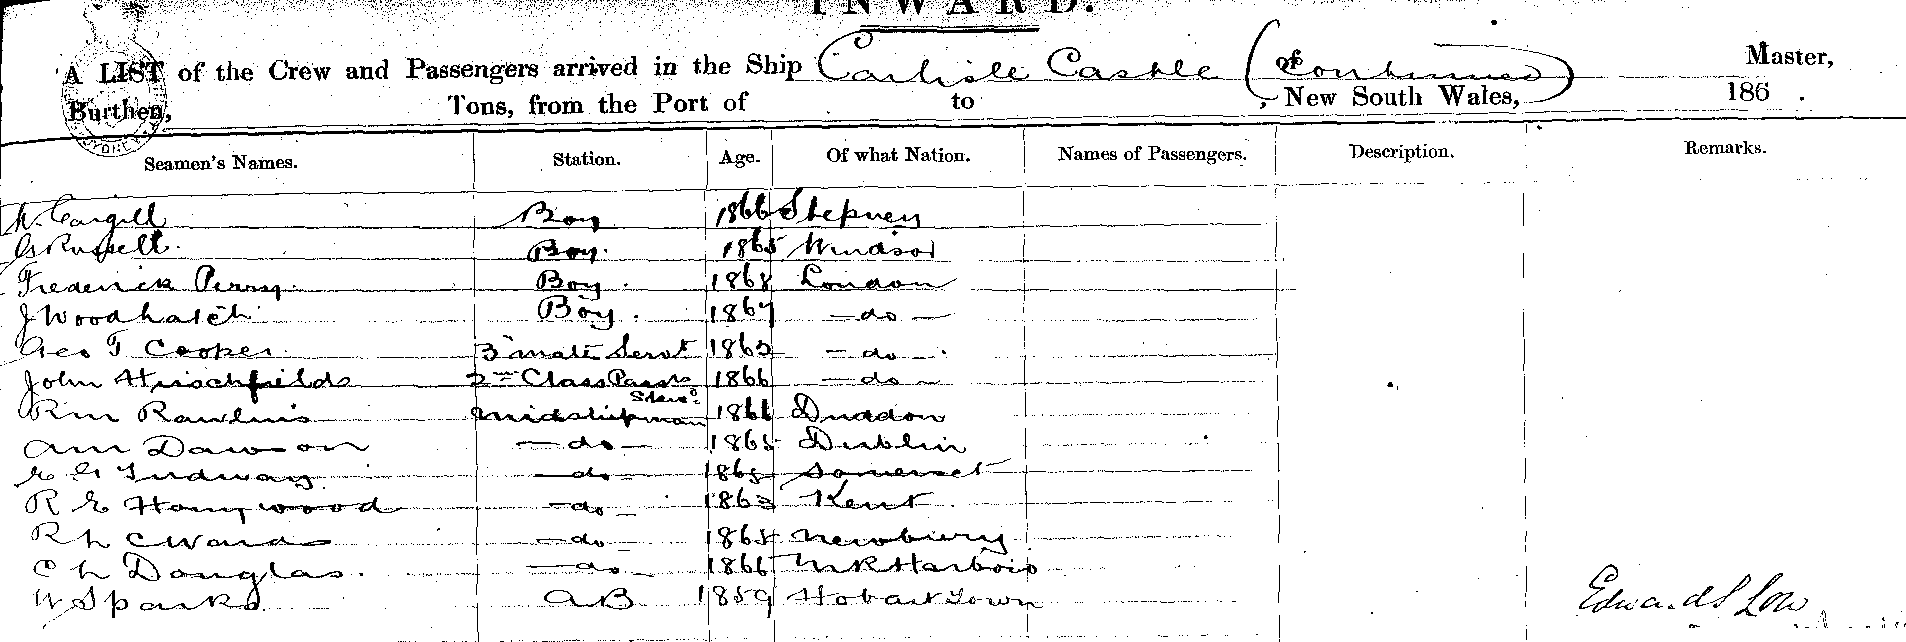 INWARD.
A LIST of the Crew and Passengers arrived in the Ship Carlisle Castle (continued) of Master,
Burthen, Tons, from the Port of to , New South Wales, 186 .
Seamen's Names. Station. Age. Of what Nation. Names of Passengers. Description. Remarks.
Cargill Boy 1866 Stepney
G Russell. Boy. 1865 Windsor
Frederick Perry. Boy. 1868 London
J Woodhatch Boy. 1867 — do —
Geo T Cooper. 3rd mate Servt 1863 — do —.
John Hirschfields 2nd Class Pass. Stewd. 1866 — do —
Rm Rawlins Midshipman 1866
Am Dawson — do — 1865 Dublin
Tudway — do — Somerset
R E Honywood — do — 1863 Kent
R L C Ward — do — Newbury
C L Douglas. — do — 1866 Mk Harboro
W Sparks AB 1859 Hobart Town
Edward S Low